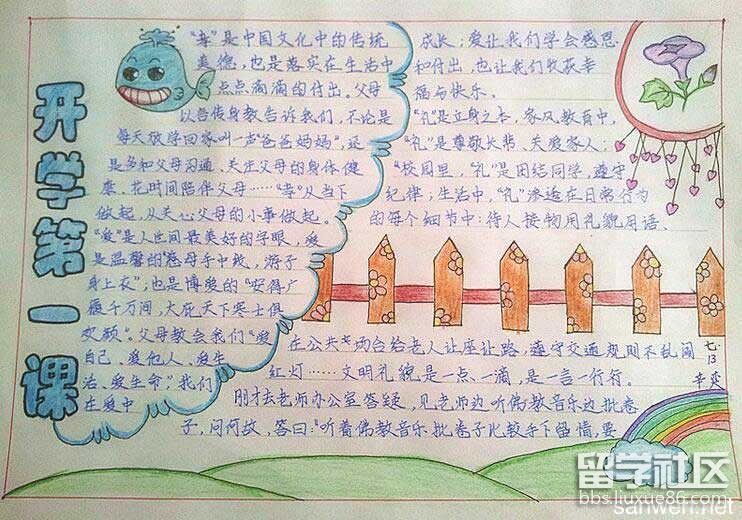 开学第一课
“孝”是中国文化中的传统
美德，也是落实在生活中
点点滴滴的付出。父母
以言传身教告诉我们，不论是
每天放学回家叫一声“爸爸妈妈”，还
是多和父母沟通、关注父母的身体健
康、花时间陪伴父母……“孝”从当下
做起，从关心父母的小事做起。
“爱”是人世间最美好的字眼，爱
是温馨的“慈母手中线，游子
身上衣”，也是博爱的“安得广
厦千万间，大庇天下寒士俱
欢颜”。父母教会我们“爱
自己、爱他人、爱生
活、爱生命”，我们
在爱中
成长；爱让我们学会感恩
和付出，也让我们收获幸
福与快乐。
“礼”是立身之本，家风、教育中，
“礼”是尊敬长辈、关爱家人；
“校园里，“礼”是团结同学，遵守
纪律；生活中，“礼”渗透在日常行为
的每个细节中：待人接物用礼貌用语、
在公共场台给老人让座让路，遵守交通规则不乱闯
红灯……文明礼貌是一点一滴，是一言一行行。
刚才去老师办公室答疑，见老师边听佛教音乐边批卷
子，问何故，答曰：“听着佛教音乐批卷子比较手下留情，要
七.13
留学社区
bbs.liuxue86.com
sanwen.net